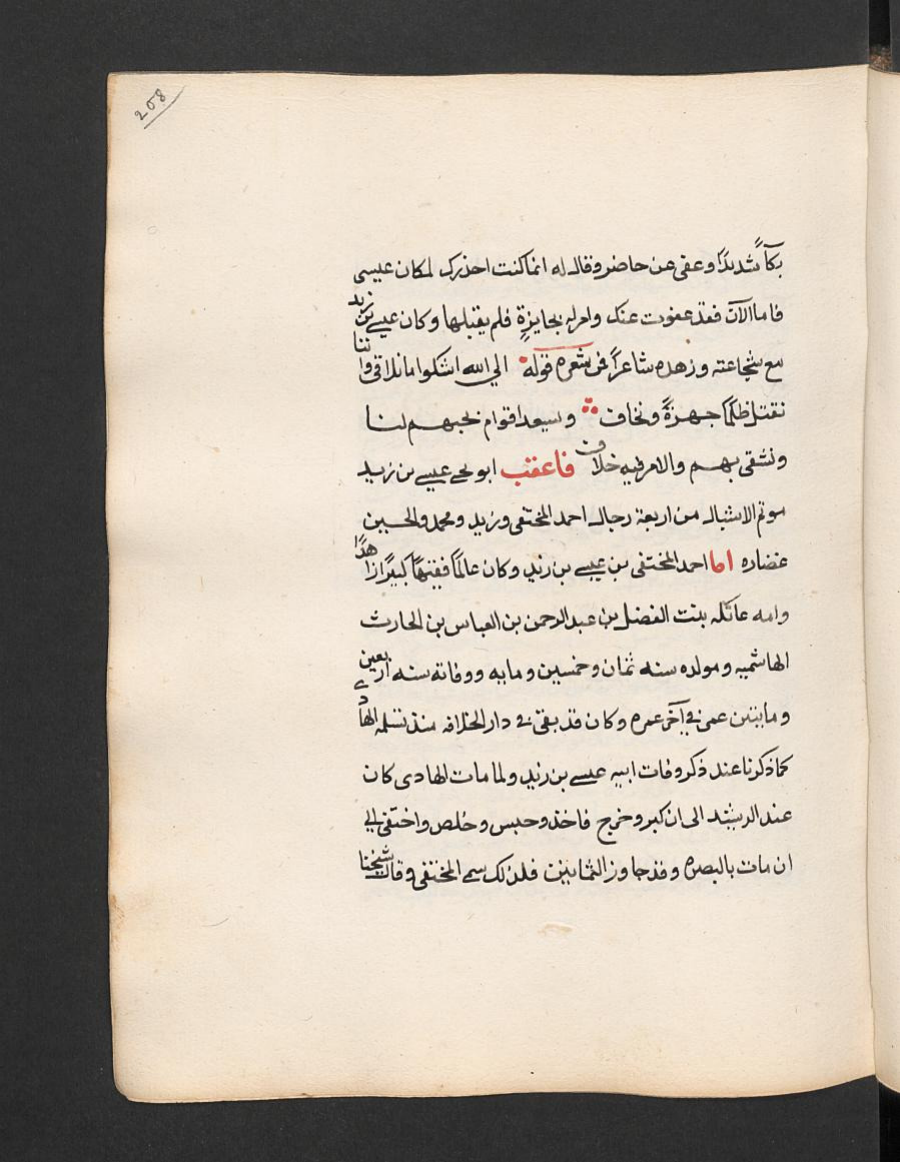 208
بكآً شديدًا وعفى عن حاضر وقال له انما كنت احذرك لمكان عيسى
فاما الآن فقد عفوت عنك وامر له بجايزةٍ فلم يقبلها وكان عيسى بن زيد
مع شجاعته وزهده شاعرًا فمن شعره قوله الي الله اشكوا ما نلاقى واننا
نقتل ظلمًا جهرةً ونخاف ويسعد اقوام بحبهم لنا
ونشقى بهم والامر فيه خلاف فاعقب ابو يحى عيسى بن زيد
موتم الاشبال من اربعة رجال احمد المختفى وزيد ومحمد والحسين
غضاره اما احمد المختفى بن عيسى بن زيد وكان عالمًا فقيهًا كبيرًا زاهدًا
وامه عاتكه بنت الفضل بن عبد الرحمن بن العباس بن الحارث
الهاشميه ومولده سنه ثمان وخمسين ومايه ووفاته سنه اربعين
ومايتين عمى في آخر عمره وكان قد بقى في دار الخلافه منذ تسلمه الهادي
كما ذكرنا عند ذكر وفات ابيه عيسى بن زيد ولما مات الهادى كان
عند الرشيد الى ان كبر وخرج فاخذ وحبس وخلص واختفى الي
ان مات بالبصره وقد جاوز الثمانين فلذلك سمى المختفى وقال شيخنا